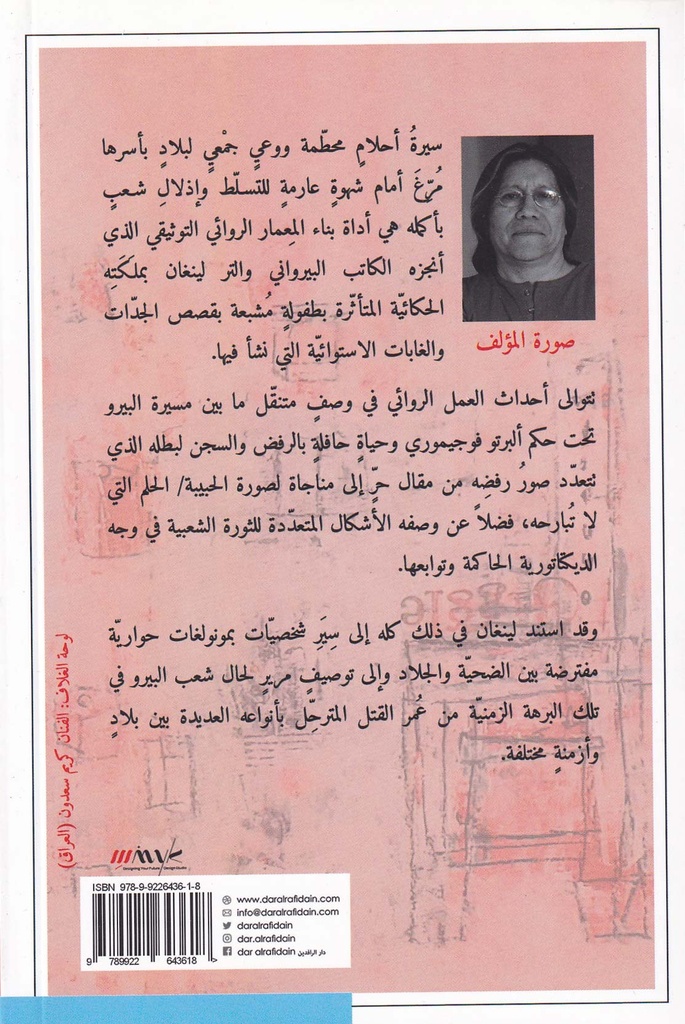 سيرةُ أحلامٍ محطّمة ووعيٍ جمْعيٍ لبلادٍ بأسرها
مُرّغَ أمام شهوةٍ عارمةٍ للتسلّط وإذلالِ شعبٍ
بأكمله هي أداة بناء المِعمار الروائي التوثيقي الذي
أنجزه الكاتب البيرواني والتر لينغان بملَكَتِه
الحكائيّة المتأثّرة بطفولةٍ مُشبعة بقصص الجدّات
والغابات الاستوائيّة التي نشأ فيها.
صورة المؤلف
تتوالى أحداث العمل الروائي في وصفٍ متنقّل ما بين مسيرة البيرو
تحت حكم ألبرتو فوجيموري وحياةٍ حافلةٍ بالرفض والسجن لبطله الذي
تتعدّد صورُ رفضِه من مقال حرّ إلى مناجاة لصورة الحبيبة/ الحلم التي
لا تُبارحه، فضلاً عن وصفه الأشكال المتعدّدة للثورة الشعبية في وجه
الديكتاتورية الحاكمة وتوابعها.
وقد استند لينغان في ذلك كله إلى سِيَرِ شخصيّات بمونولغات حواريّة
مفترضة بين الضحيّة والجلاد وإلى توصيفٍ مريرٍ لحال شعب البيرو في
تلك البرهة الزمنيّة من عُمر القتل المترحِّل بأنواعه العديدة بين بلادٍ
وأزمنةٍ مختلفة.
لوحة الغلاف: الفنان كريم سعدون (العراق)
ISBN 978-9-9226436-1-8
9 789922 643618 >
www.daralrafidain.com
info@daralrafidain.com
daralrafidain
dar.alrafidain
dar alrafidain دار الرافدين